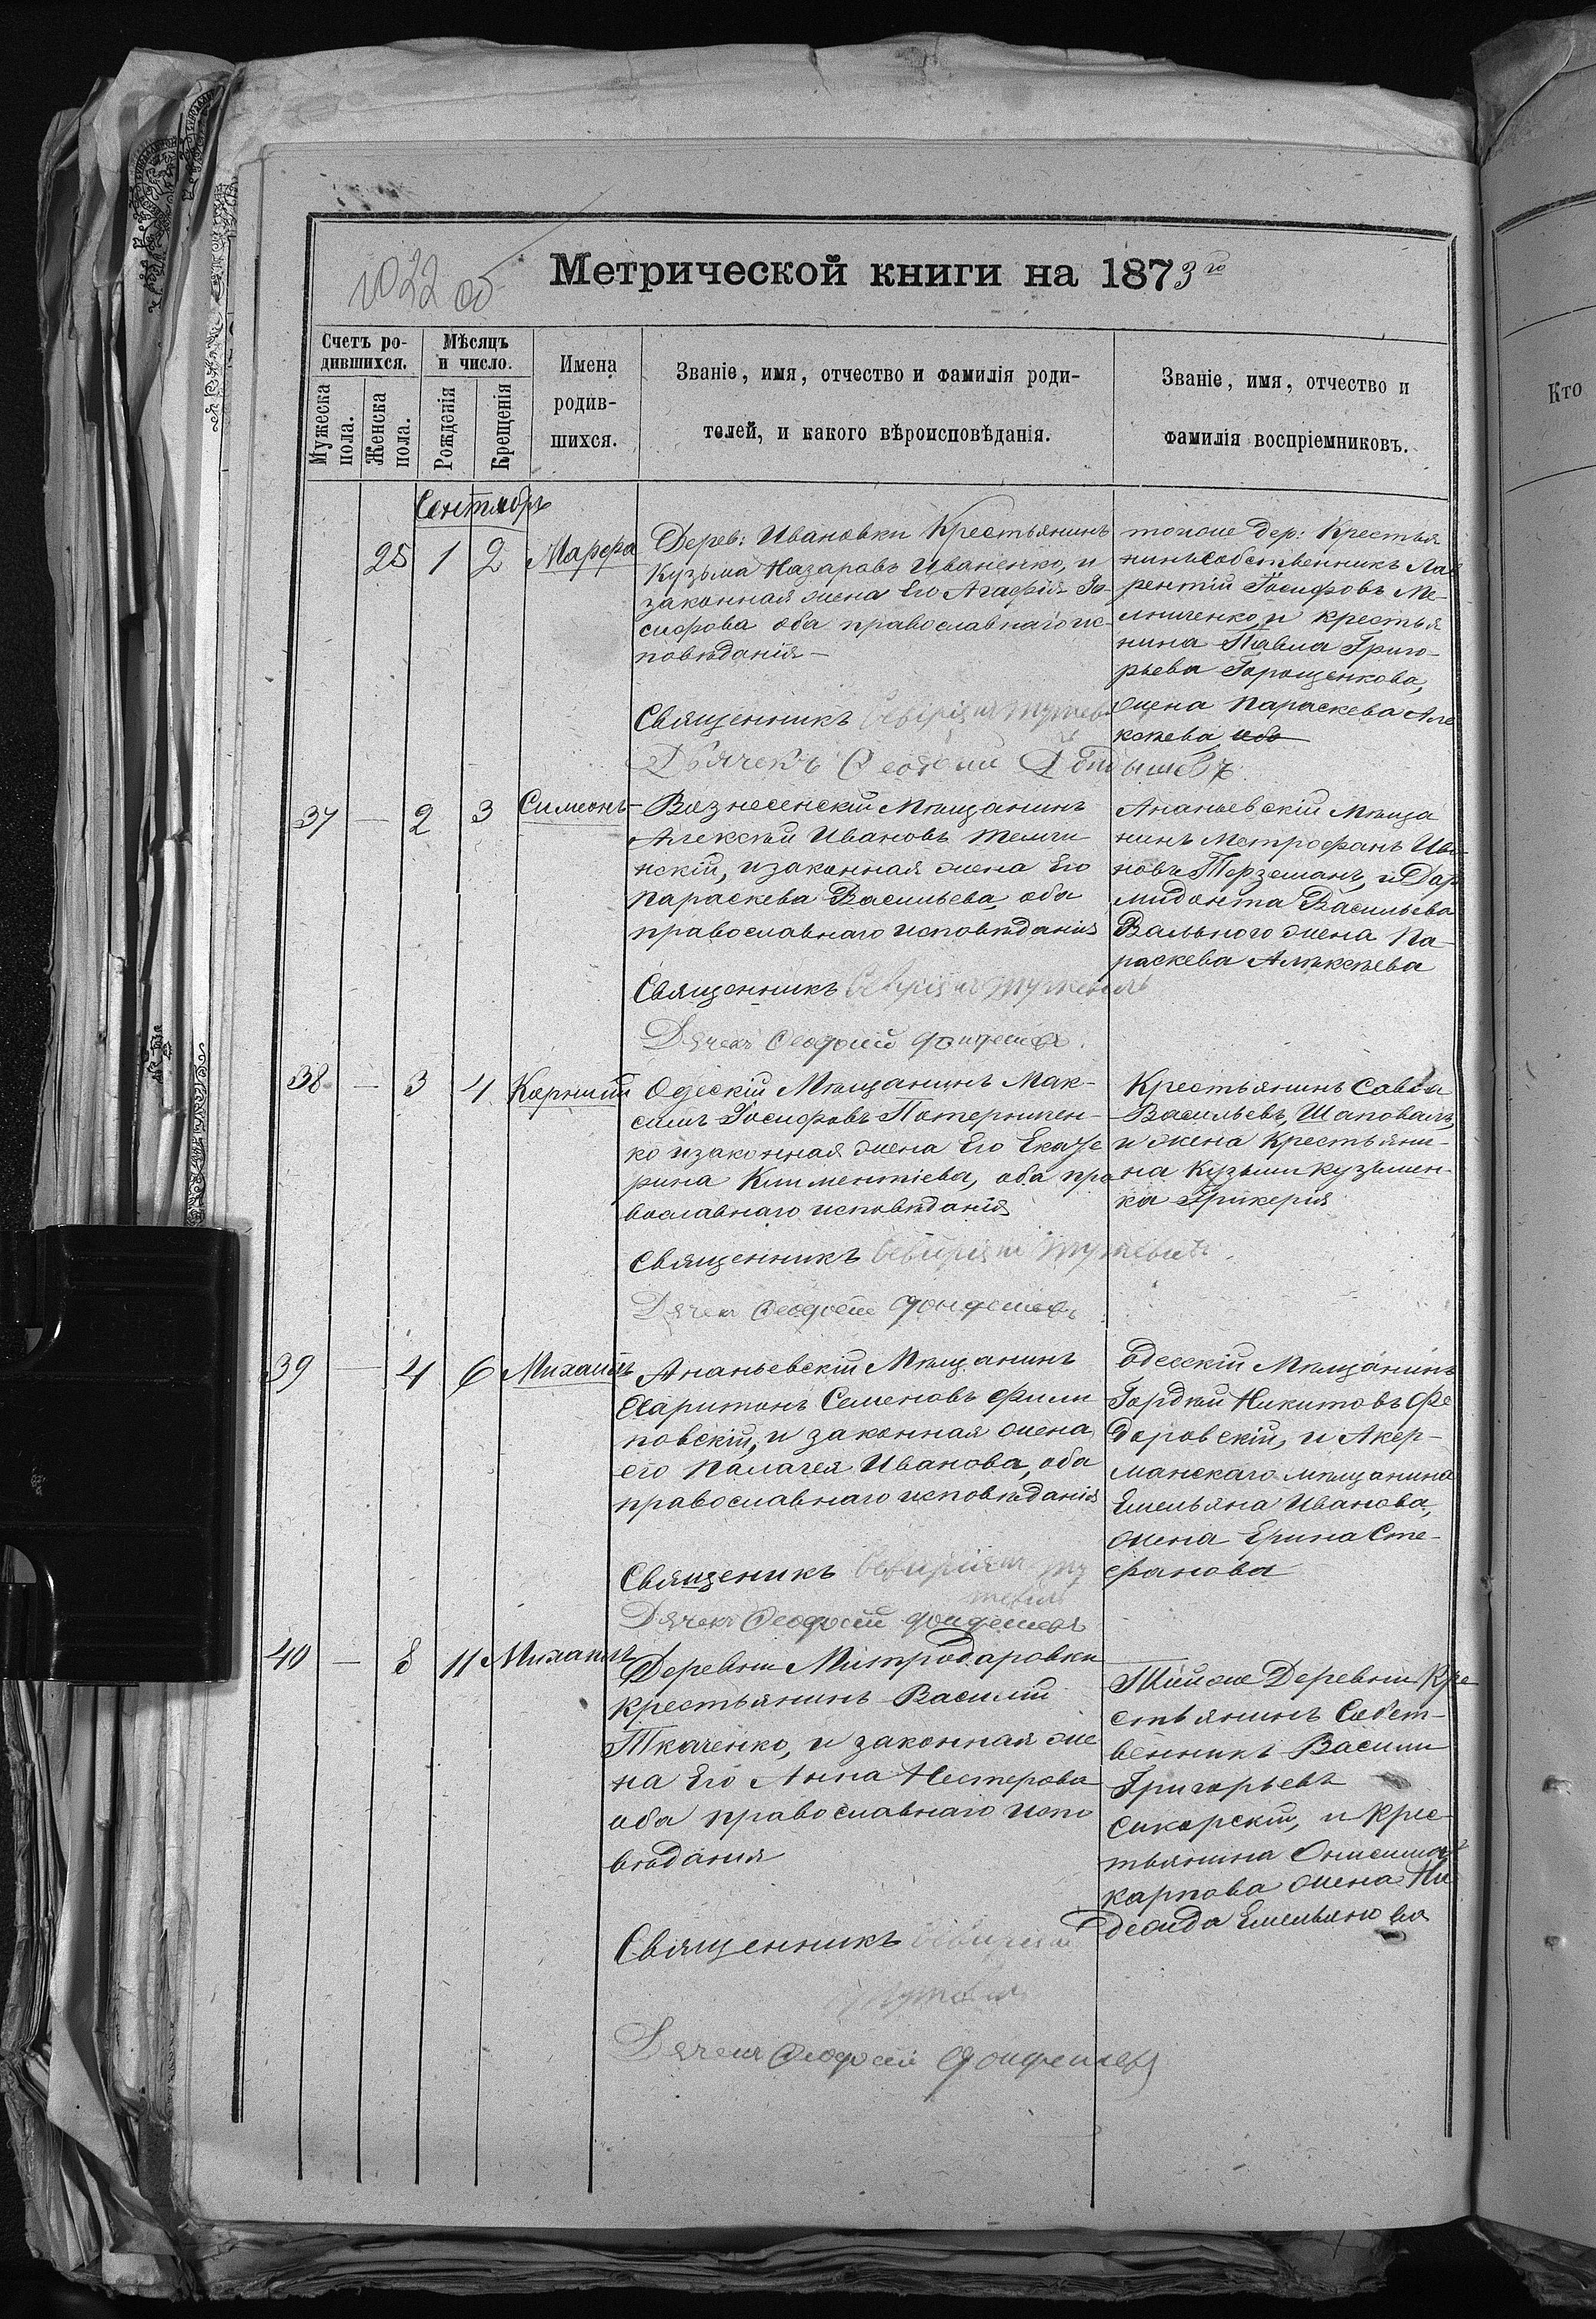 1022 об
Метрической книги на 1873го
Счетъ ро-
дившихся.
Мужеска
пола.
Женска
пола.
Мѣсяцъ
и число.
Рожденія
Крещенія
Имена
родив-
шихся.
Званіе, имя, отчество и фамилія роди-
телей, и какого вѣроисповѣданія.
Званіе, имя, отчество и
фамилія воспріемниковъ.
Кто
Сентябрь
25 1 2 Марфа
Дерев: Ивановки Крестьянинъ
Кузьма Назаровъ Иваненко, и
законная жена Его Агафія Іо-
сифова оба православнаго ис-
повѣданія-
Священникъ
Дьячекъ Ѳеодосій
тойже дер: Крестья
нинъ собственникъ Лав
рентій Іосифовъ Ме-
лниченко, и крестья
нина Павла Григо-
рьева Горощенкова,
жена Параскева Але
ксѣева
37 — 2 3 Симеонъ
Вознесенскій Мѣщанинъ
Алексѣй Ивановъ
нскій, и законная жена Его
Параскева Васильева, оба
православнаго исповѣданія
Священникъ
Дячекъ Ѳеодосій
Ананьевскій Мѣща
нинъ Метрофанъ Ива
новъ Терземанъ, и Дор
мидонта Васильева
Вального жена Па-
раскева Алѣксѣева
38 — 3 4 Корнилій
Одескій Мѣщанинъ Мак-
симъ Іосифовъ Потерничен-
ко и законная жена Его Екате
рина Климентіева, оба пра
вославнаго исповѣданія
Священникъ
Дячекъ Ѳеодосій
Крестьянинъ Савва
Васильевъ, Шаповалъ,
и жена Крестьяни-
на Кузьмы кузьмен-
ка Гликерія
39 — 4 6 Михаилъ
Ананьевскій Мѣщанинъ
Харитонъ Семеновъ Фили
повскій, и законная жена
его Палагея Иванова, оба
православнаго исповѣданія
Священикъ
Дячекъ Ѳеодосій
одесскій Мѣщанинъ
Гордѣй Никитовъ Фе
доровскій, и Акер-
манскаго мѣщанина
Емельяна Иванова,
жена Ерина Сте-
фанова
40 — 8 11 Михаилъ
Деревни Митродаровки
крестьянинъ Василій
Ткаченко, и законная же
на Его Анна Нестерова
оба православнаго испо
вѣдания
Священникъ
Дячекъ Ѳеодосій
Тойже Деревни Кре
стьянинъ Собст-
венникъ Василій
Григорьевъ
Сикорскій, и крес-
тьянина Онисима
карпова жена Ни
Емельянова